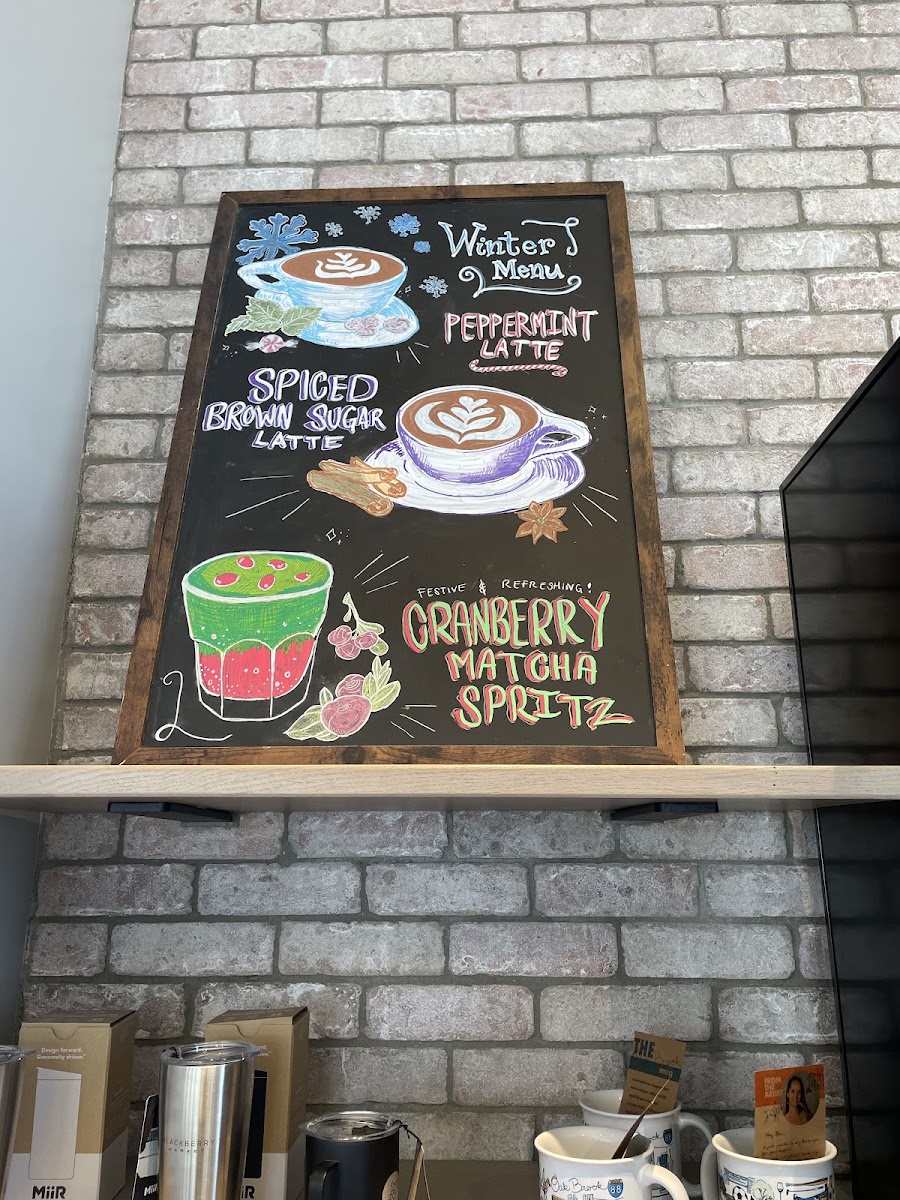 Winter
Menu
PEPPERMINT
LATTE
SPICED
BROWN SUGAR
LATTE
FESTIVE & REFRESHING!
CRANBERRY
MATCHA
SPRITZ
Design forward.
Generosity driven.
MiiR
BLACKBERRY
MARKET
MiiR
MiiR
THE
mug
FROM
THE
ARTIST
Oak Brook
88